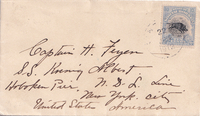 Captain H. Feyen
S.S. Koenig Albert
Hoboken Pier, N. D. L. Line
New York City
United States America